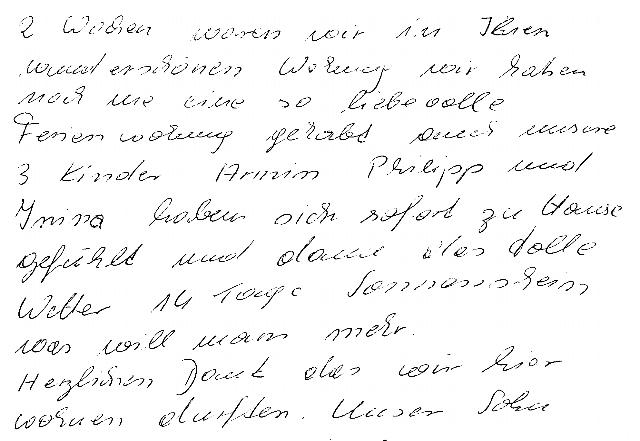 2 Wochen waren wir in Ihren
wunderschönen Wohnung wir haben
noch nie eine so liebevolle
Ferienwohnung gehabt auch unsere
3 Kinder Armin Philipp und
Irina haben sich sofort zu Hause
gefühlt und dann das tolle
Wetter 14 Tage Sonnenschein
was will man mehr.
Herzlichen Dank das wir hier
wohnen durften. Unser Sohn